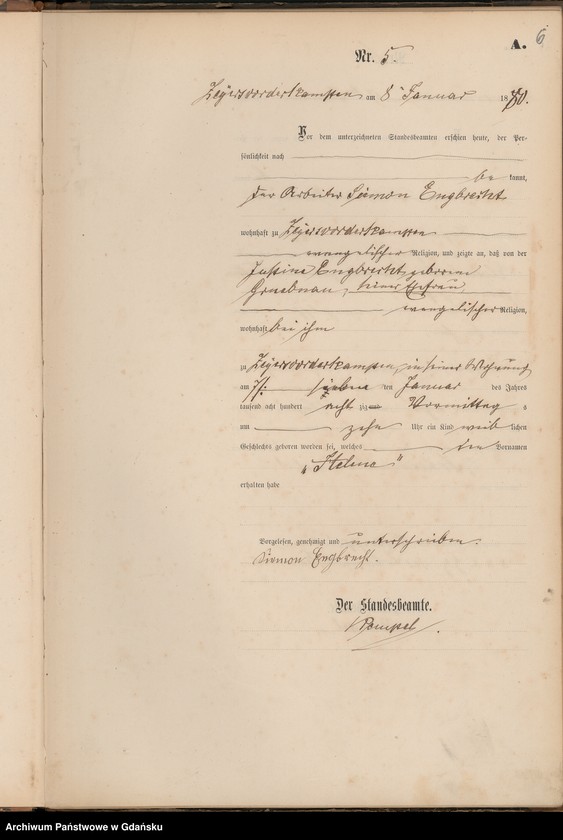 A. 6
Nr. 5.
Zeyersvorderkampen am 8 Januar 1880.
Vor dem unterzeichneten Standesbeamten erschien heute, der Per-
sönlichkeit nach
be kannt,
der Arbeiter Simon Engbrecht
wohnhaft zu Zeyersvorderkampen
evangelischer Religion, und zeigte an, daß von der
Justine Engbrecht geborene
seiner Ehefrau
evangelischer Religion,
wohnhaft bei ihm
zu Zeyersvorderkampen, in seiner Wohnung
am 7/: sieben ten Januar des Jahres
tausend acht hundert acht zig und Vormittag s
um zehn Uhr ein Kind weib lichen
Geschlechts geboren worden sei, welches den Vornamen
erhalten habe
Vorgelesen, genehmigt und unterschrieben.
Simon Engbrecht.
Der Standesbeamte.
Rempel.
Archiwum Państwowe w Gdańsku